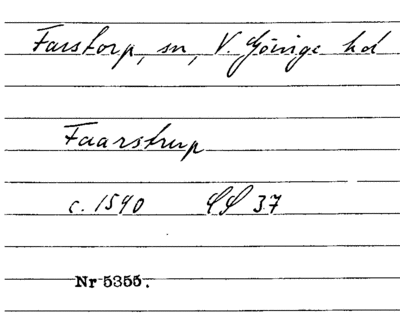 Farstorp, sn, V. Göinge hd
Faarstrup
c. 1590 LL 37
Nr 5355.